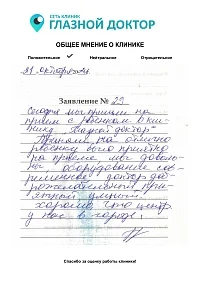 СЕТЬ КЛИНИК
ГЛАЗНОЙ ДОКТОР
ОБЩЕЕ МНЕНИЕ О КЛИНИКЕ
Положительное ✓ Нейтральное Отрицательное
октября
Заявление № 29
Сегодня мы пришли на
прием с ребенком в кли-
нику "Глазной доктор"
отлично
ребенку всего
на приеме мы доволь-
ны, оборудование сов-
ременное доктор доб-
рожелательный при-
ятный умный.
хорошо что центр
у нас в городе!
Спасибо за оценку работы клиники!